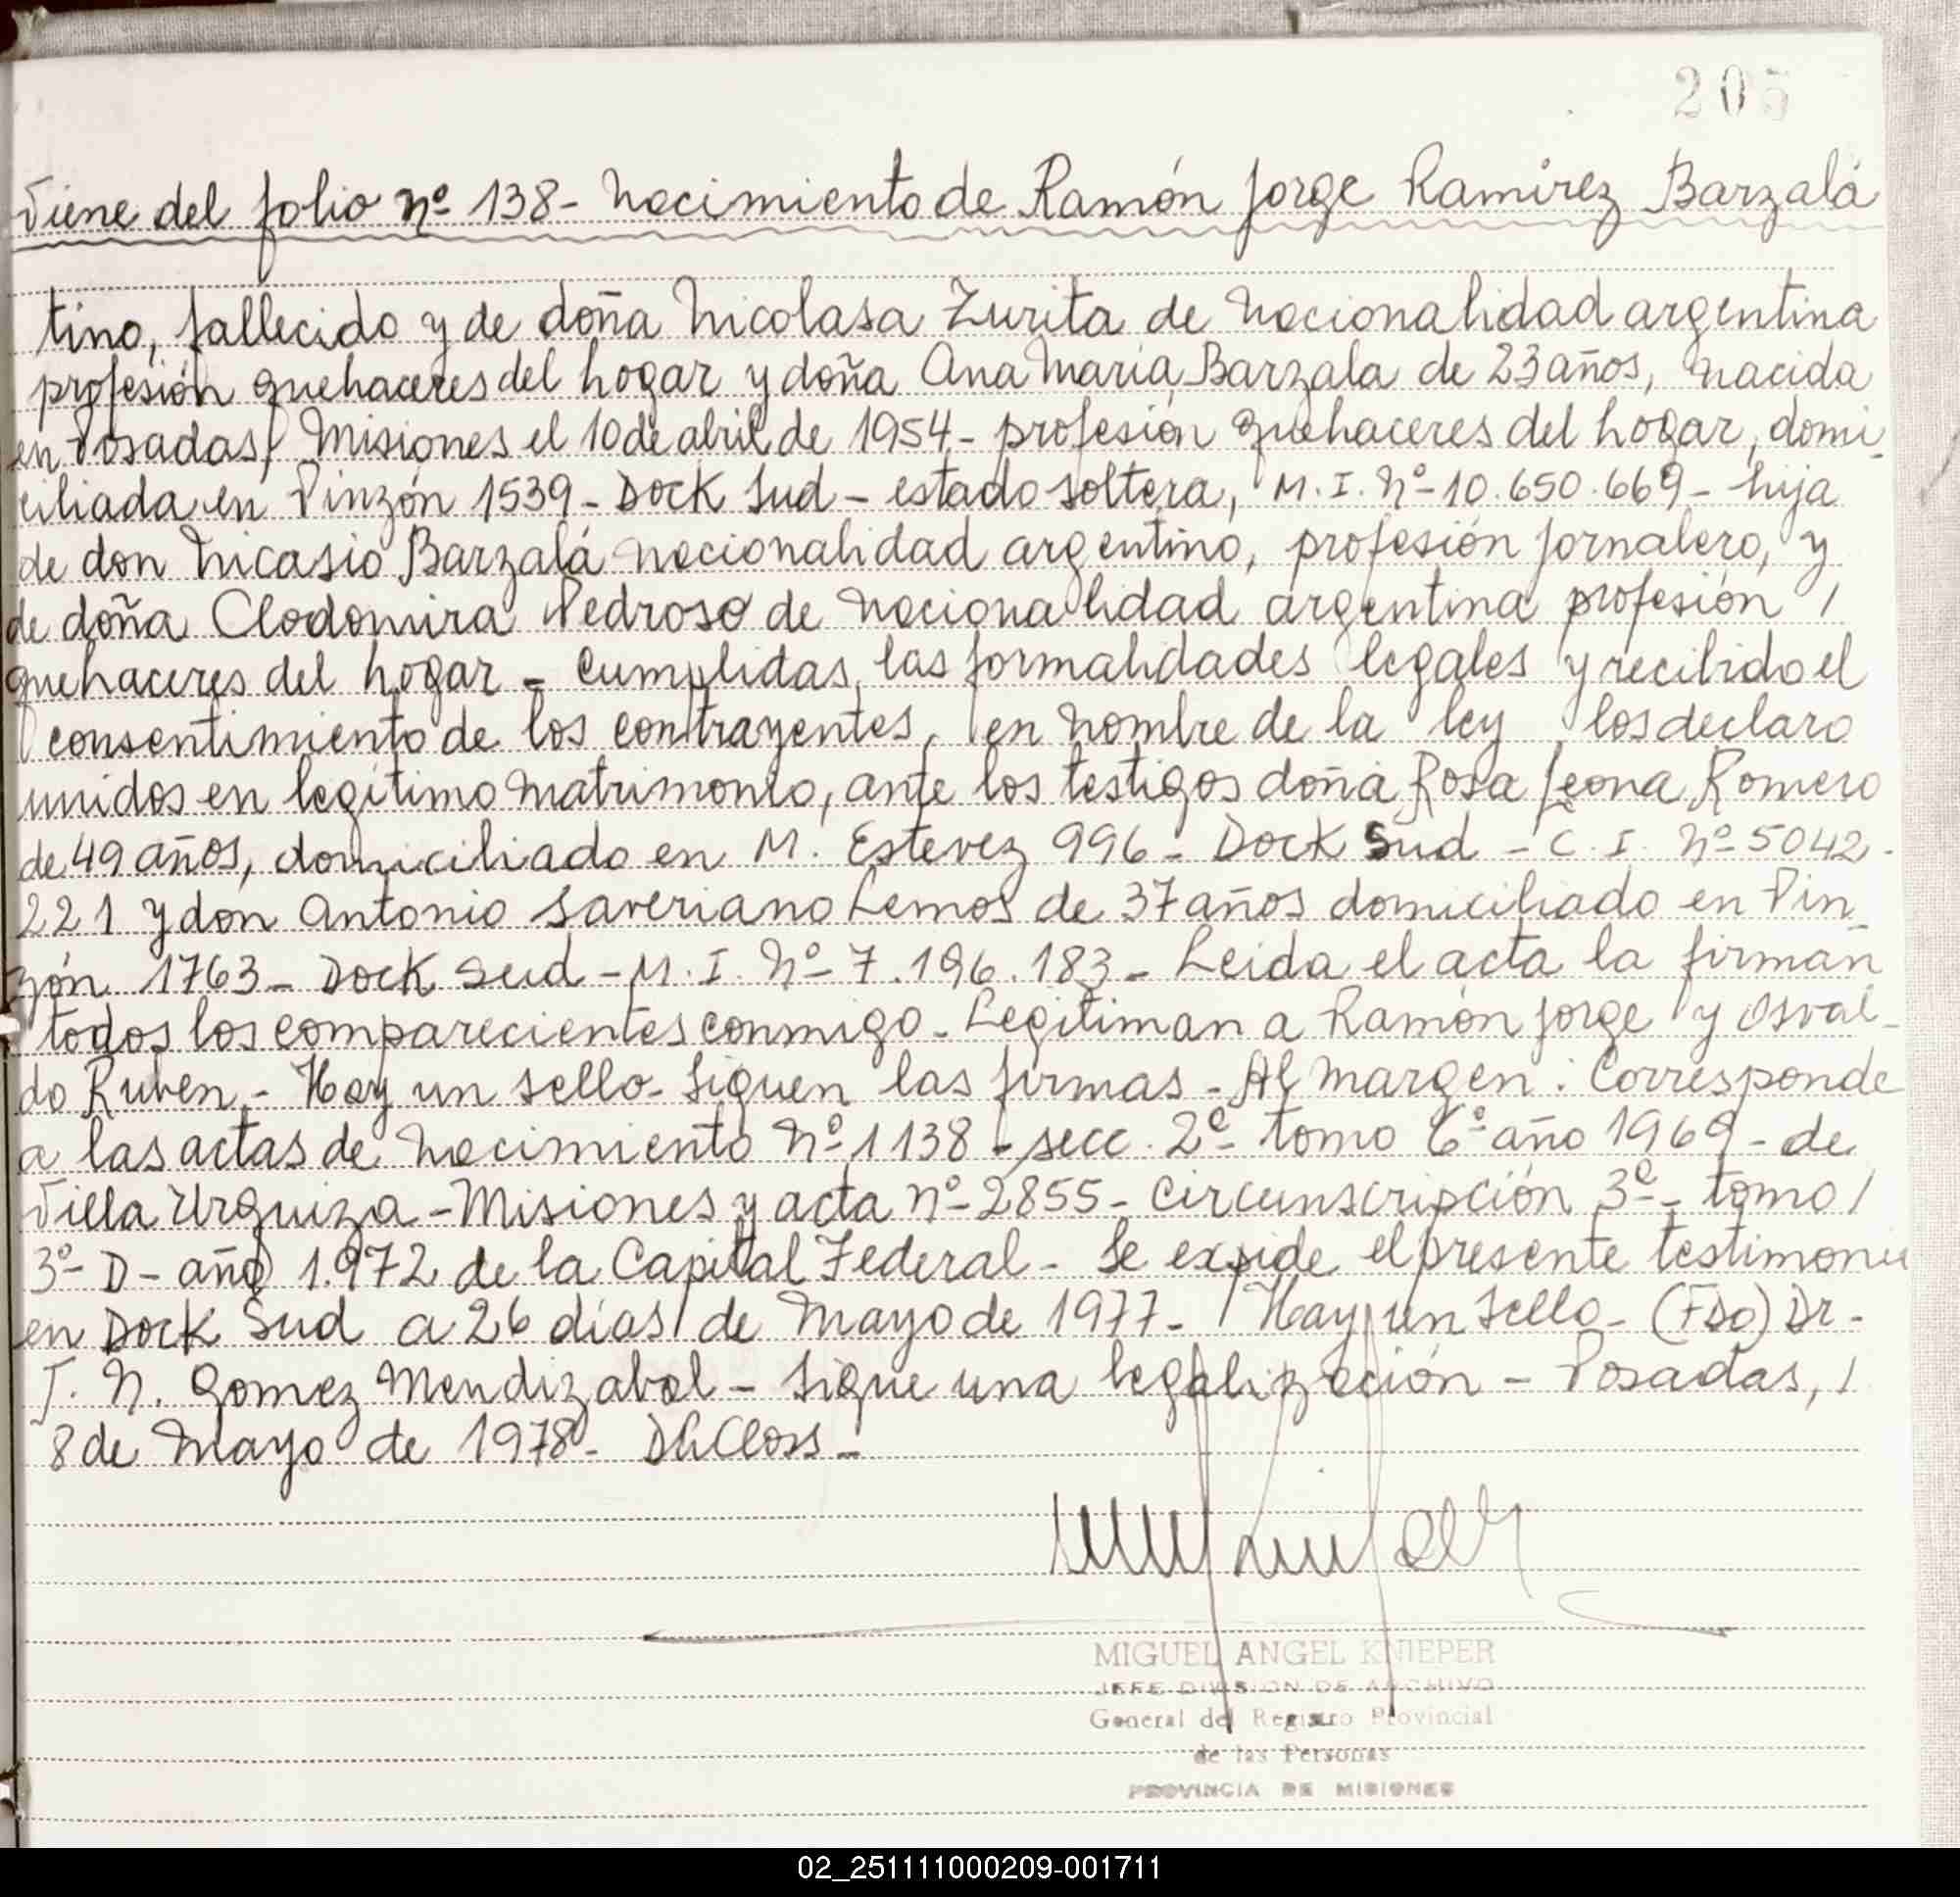 205
Viene del folio nº 138- Nacimiento de Ramón Jorge Ramírez Barzalá
tino, fallecido y de doña Nicolasa Zurita de nacionalidad argentina
profesión quehaceres del hogar y doña Ana María Barzala de 23 años, nacida
en Posadas, Misiones el 10 de abril de 1954- profesión quehaceres del hogar, domi-
ciliada en Pinzón 1539- Dock Sud - estado soltera, M. I. Nº- 10.650.669- hija
de don Nicasio Barzalá nacionalidad argentino, profesión jornalero, y
de doña Clodomira Pedroso de nacionalidad argentina profesión /
quehaceres del hogar - Cumplidas las formalidades legales y recibido el
consentimiento de los contrayentes, en nombre de la ley los declaro
unidos en legítimo matrimonio, ante los testigos doña Rosa Romero
de 49 años, domiciliado en M. Estevez 996- Dock Sud - C. I. Nº- 5042.
221 y don Antonio Saveriano Lemos de 37 años domiciliado en Pin-
zón 1763- Dock Sud - M. I. Nº- 7.196.183- Leida el acta la firman
todos los comparecientes conmigo- Legitiman a Ramón Jorge y Osval-
do Ruben.- Hay un sello- Siguen las firmas - Al margen: Corresponde
a las actas de nacimiento Nº 1138- secc. 2º- tomo 6º año 1969- de
Villa Urquiza - Misiones y acta nº- 2855- Circunscripción 3º- tomo /
3º- D- año 1.972 de la Capital Federal- Se expide el presente testimonio
en Dock Sud a 26 días de Mayo de 1977- / Hay un sello- (Fdo) Dr-
J. N. Gomez Mendizabal - Sigue una legalización - Posadas, /
8 de Mayo de 1978- DhCloss-
MIGUEL ANGEL KNIEPER
JEFE DIVISION DE ARCHIVO
General del Registro Provincial
de las Personas
PROVINCIA DE MISIONES
02_251111000209-001711